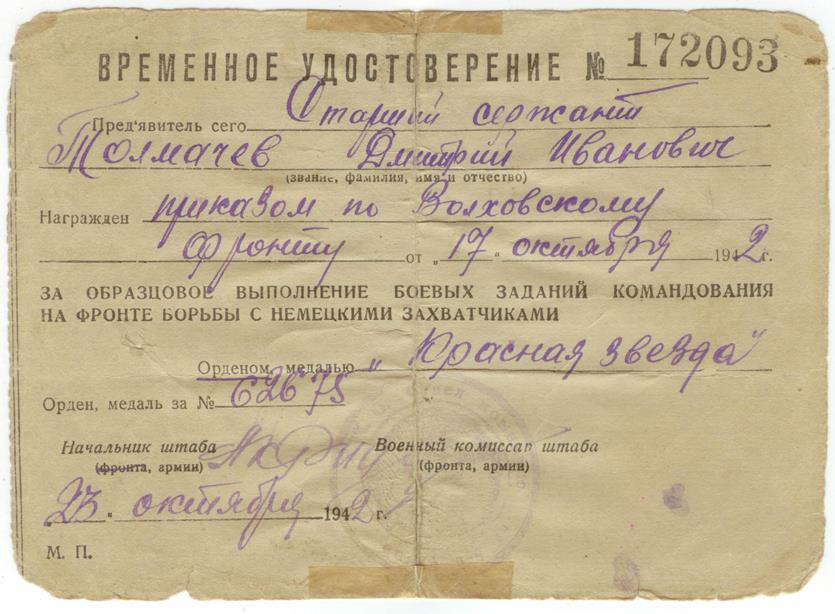 ВРЕМЕННОЕ УДОСТОВЕРЕНИЕ № 172093
Пред'явитель сего Старший сержант
Толмачев Дмитрий Иванович
(звание, фамилия, имя и отчество)
Награжден приказом по Волховскому
фронту от „17“ октября 1942 г.
ЗА ОБРАЗЦОВОЕ ВЫПОЛНЕНИЕ БОЕВЫХ ЗАДАНИЙ КОМАНДОВАНИЯ
НА ФРОНТЕ БОРЬБЫ С НЕМЕЦКИМИ ЗАХВАТЧИКАМИ
Орденом, медалью „Красная звезда“
Орден, медаль за № 62675
Начальник штаба Военный комиссар штаба
(фронта, армии) (фронта, армии)
„23“ октября 1942 г.
М. П.